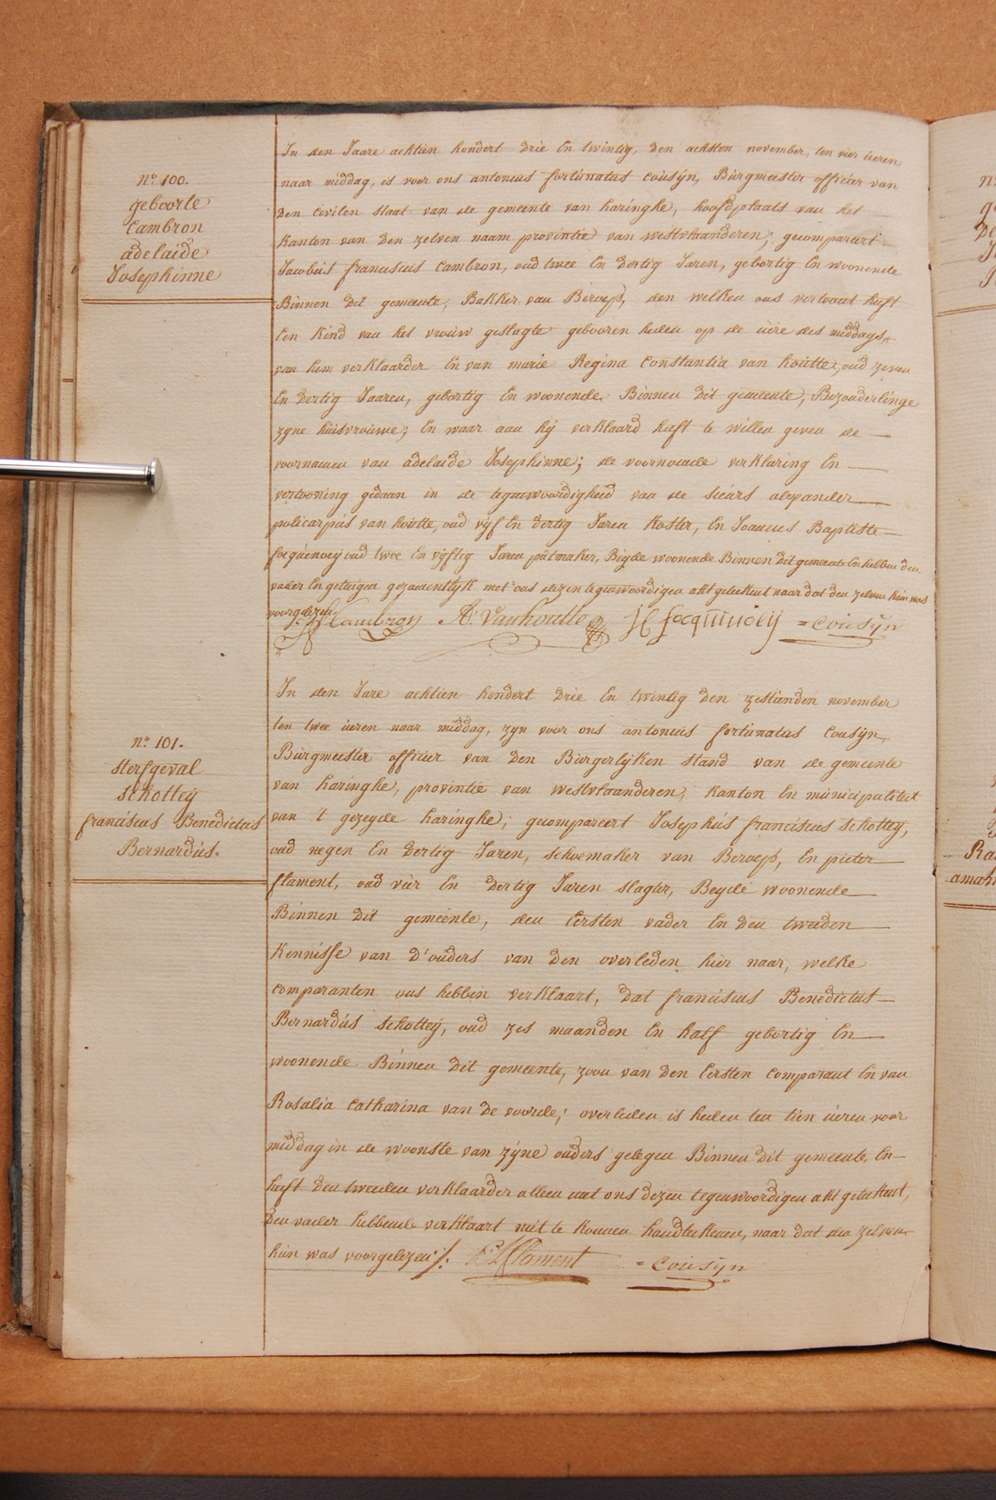 N.º 100.
geboorte
Cambron
adelaide
Josephinne
In den Jaare achtien hondert drie En twintig, den achsten november, ten vier ueren
naar middag, is voor ons antonius fortunatus Cousÿn, Burgmeester officier van
den Civilen staat van de gemeente van haringhe, hoofdplaats van het
kanton van den zelven naam provintie van westvlaanderen; gecompareert
Jacobus franciscus Cambron, oud twee En dertig Jaren, gebortig En woonende
Binnen dit gemeente, Bakker van Beroep, den welken ons vertoont heeft
Een kind van het vrouw geslagte gebooren heden op de uere des middags,
van hem verklaarder En van marie Regina Constantia van houtte, oud zeven
En dertig Jaaren, gebortig En woonende Binnen dit gemeente, Bezonderlinge
zyne huisvrouwe; En waar aan hij verklaard heeft te willen geven de
voornamen van adelaide Josephinne; de voornoemde verklaring En
vertooning gedaan in de tegenwoordigheid van de sieurs alexander
policarpus van houtte, oud vijf En dertig Jaren Koster, En Joannes Baptiste
focquenoeij oud twee En vijftig Jaren Beijde woonende Binnen dit gemeente En hebben den
vader En getuigen gezamentlijk met ons dezen tegenwoordigen akt geteekent naar dat den zelven hun was
voorgelezen
Cambron A. Vanhoutte focquenoeij = Cousÿn
N.º 101.
sterfgeval
schotteij
franciscus Benedictus
Bernardus.
In den Jare achtien hondert drie En twintig den zestienden november
ten twee ueren naar middag, zyn voor ons antonius fortunatus Cousÿn,
Burgmeester officier van den Burgerlyken stand van de gemeente
van haringhe, provintie van westvlaanderen, kanton En municipaliteit
van 't gezeyde haringhe; gecompareert Josephus franciscus schotteij,
oud negen En dertig Jaren, schoemaker van Beroep, En pieter
flament, oud vier En dertig Jaren slagter, Beyde woonende
Binnen dit gemeente, den Eersten vader En den tweeden
Kennisse van d'ouders van den overleden hier naar, welke
comparanten ons hebben verklaart, dat franciscus Benedictus
Bernardus schotteij, oud zes maanden En half gebortig En
woonende Binnen dit gemeente, zoon van den Eersten comparant En van
Rosalia Catharina van de voorde; overleden is heden ten tien ueren voor
middag in de woonste van zyne ouders gelegen Binnen dit gemeente, En
heeft den tweeden verklaarder alleen met ons dezen tegenwoordigen akt geteekent,
den vader hebbende verklaart niet te konnen handteekenen, naar dat den zelven
hun was voorgelezen ./. Flament = Cousÿn